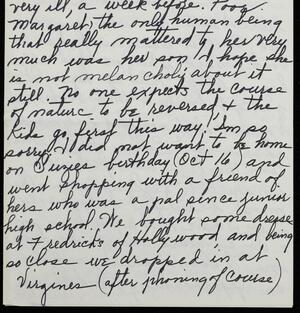 very ill, a week before. Poor
Margaret, the only human being
that really mattered to her very
much was her son! I hope she
is not melancholy about it
still. No one expects the course
of nature to be reversed & the
kids go first this way! I'm so
sorry. I did not want to be home
on Suzies birthday (Oct 16) and
went shopping with a friend of
hers who was a pal since junior
high school. We bought some dresses
at Fredricks of Hollywood and being
so close we dropped in at
Virgines (after phoning of course)